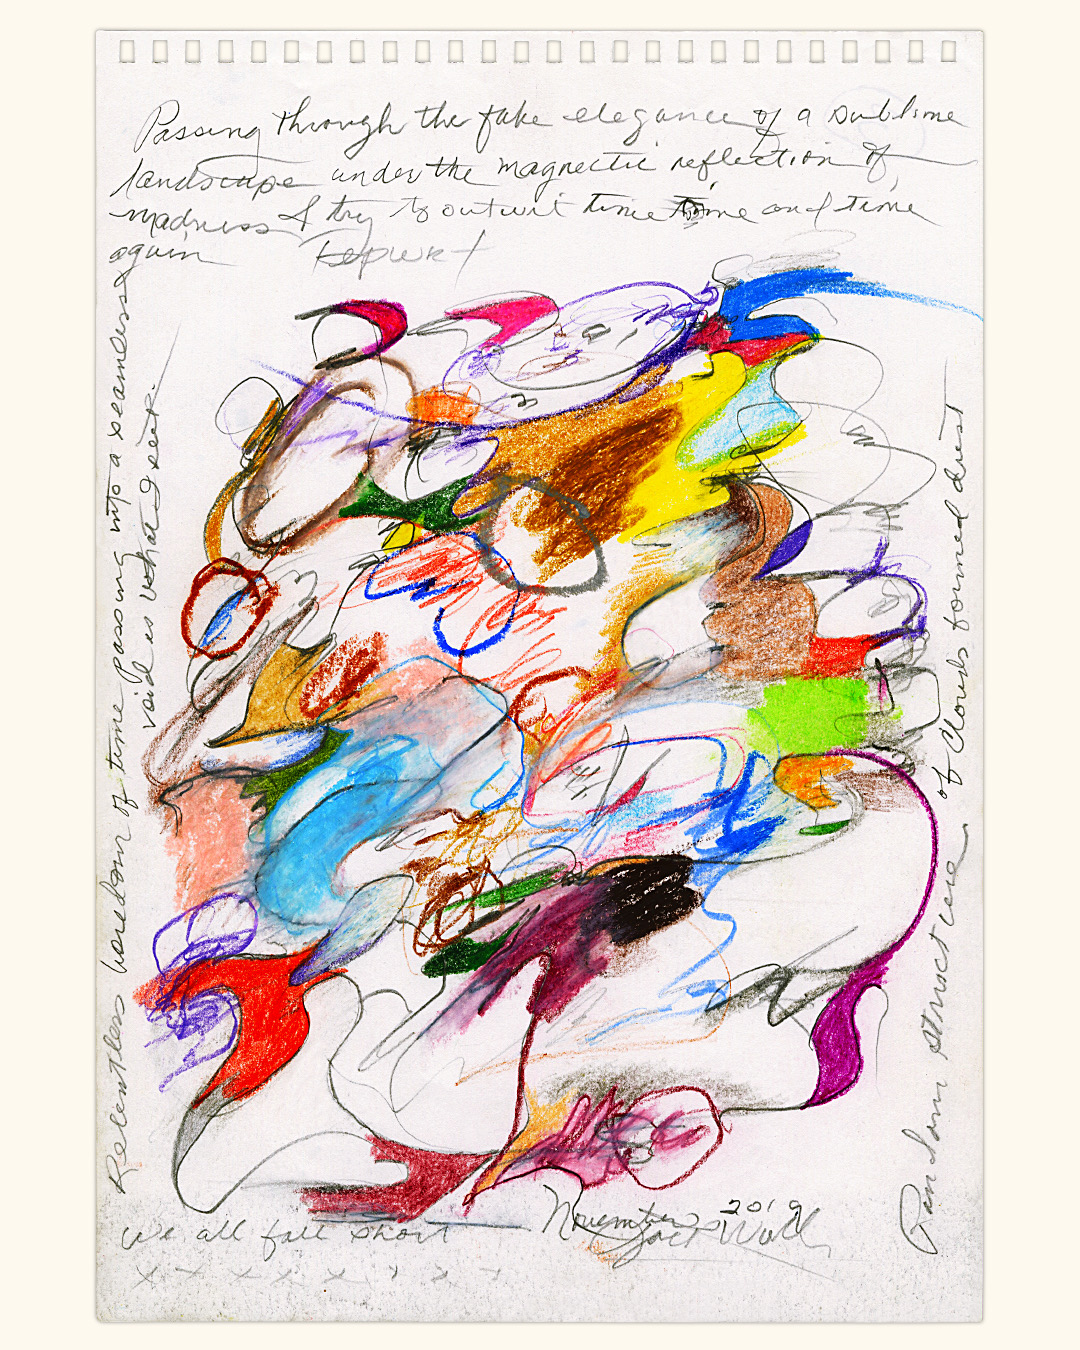 Passing through the fake elegance of a sublime
landscape under the magnectic reflection of
madness I try to outwit time time and time
again
Relentless boredom of time passing into a seamless
void is what I seek.
Random structure of clouds formed dust
We all fall short
November 2019
Jack
x x x x x x x x